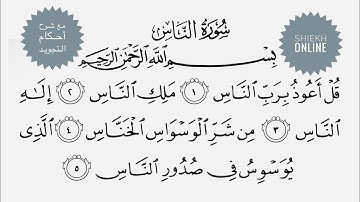 مع شرح
أحكام
التجويد
سُورَةُ النَّاسِ
SHIEKH
ONLINE
بِسْمِ اللَّهِ الرَّحْمَٰنِ الرَّحِيمِ
قُلْ أَعُوذُ بِرَبِّ النَّاسِ ١ مَلِكِ النَّاسِ ٢ إِلَٰهِ
النَّاسِ ٣ مِن شَرِّ الْوَسْوَاسِ الْخَنَّاسِ ٤ الَّذِى
يُوَسْوِسُ فِى صُدُورِ النَّاسِ ٥